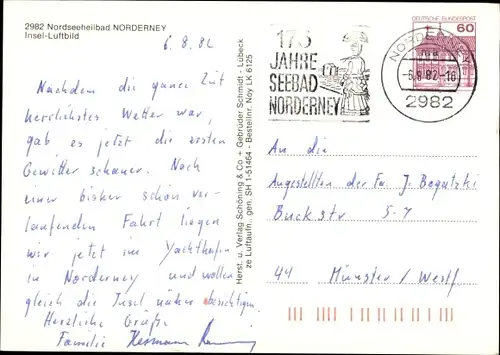 2982 Nordseeheilbad NORDERNEY
Insel-Luftbild
6.8.82
Nachdem die ganze Zeit
herrlichstes Wetter war,
gab es jetzt die ersten
Gewitterschauer. Nach
einer bisher schön ver-
laufenden Fahrt liegen
wir jetzt im Yachthafen
in Norderney und wollen
gleich die Insel näher besichtigen.
Herzliche Grüße
Familie Hermann
Herst. u. Verlag Schöning & Co + Gebrüder Schmidt - Lübeck
ze Luftaufn. gnm. SH 1-51464 - Bestellnr. Noy LK 6125
175
JAHRE
SEEBAD
NORDERNEY
NORDERNEY
-6.8.82-16
2982
DEUTSCHE BUNDESPOST
60
An die
Angestellten der Fa. J. Bogatzki
Buckstr 5-7
44 Münster / Westf